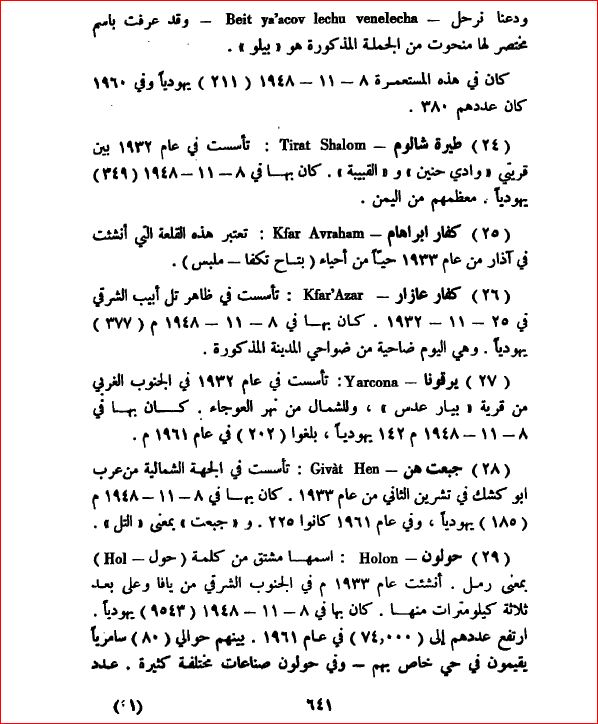 ودعنا نرحل – Beit ya'acov lechu venelecha – وقد عرفت باسم
مختصر لها منحوت من الجملة المذكورة هو « بيلو » .
كان في هذه المستعمرة ٨ – ١١ – ١٩٤٨ ( ٢١١ ) يهودياً وفي ١٩٦٠
كان عددهم ٣٨٠ .
( ٢٤ ) طيرة شالوم – Tirat Shalom : تأسست في عام ١٩٣٢ بين
قريتي « وادي حنين » و « القبيبة » . كان بهـا في ٨ – ١١ – ١٩٤٨ ( ٣٤٩ )
يهودياً . معظمهم من اليمن .
( ٢٥ ) كفار ابراهام – Kfar Avraham : تعتبر هذه القلعة التي أنشئت
في آذار من عام ١٩٣٣ حيّاً من أحياء ( بتـاح تكفا – ملبس ) .
( ٢٦ ) كفار عازار – Kfar'Azar : تأسست في ظاهر تل أبيب الشرقي
في ٢٥ – ١١ – ١٩٣٢ . كـان بهـا في ٨ – ١١ – ١٩٤٨ م ( ٣٧٧ )
يهودياً . وهي اليوم ضاحية من ضواحي المدينة المذكورة .
( ٢٧ ) يرقونا – Yarcona: تأسست في عام ١٩٣٢ في الجنوب الغربي
من قرية « بيـار عدس » ، وللشمال من نهر العوجاء . كـــان بهـا في
٨ – ١١ – ١٩٤٨ م ١٤٢ يهوديـاً ، بلغوا ( ٢٠٢ ) في عام ١٩٦١ م .
( ٢٨ ) جبعت هن – Givàt Hen : تأسست في الجهـة الشمالية من عرب
ابو كشك في تشرين الثاني من عام ١٩٣٣ . كان بهـا في ٨ – ١١ – ١٩٤٨ م
( ١٨٥ ) يهودياً ، وفي عام ١٩٦١ كانوا ٢٢٥ . و « جبعت » بمعنى « التل » .
( ٢٩ ) حولون – Holon : اسمهـا مشتق من كلمة ( حول – Hol )
بمعنى رمل . أنشئت عام ١٩٣٣ م في الجنوب الشرقي من يافا وعلى بعـد
ثلاثة كيلومترات منهـا . كان بها في ٨ – ١١ – ١٩٤٨ ( ٩٥٤٣ ) يهودياً .
ارتفع عددهم إلى ( ٧٤,٠٠٠ ) في عـام ١٩٦١ . بينهم حوالي ( ٨٠ ) سامرياً
يقيمون في حي خاص بهم – وفي حولون صناعات مختلفـة كثيرة . عـدد
٦٤١